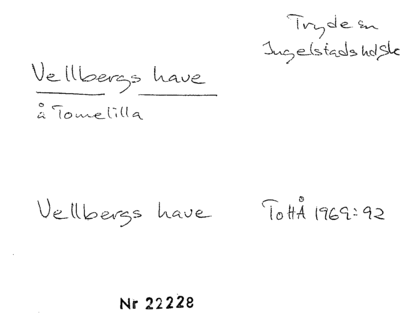 Tryde sn
Ingelstads hd Sk
Vellbergs have
å Tomelilla
Vellbergs have ToHÅ 1969:92
Nr 22228